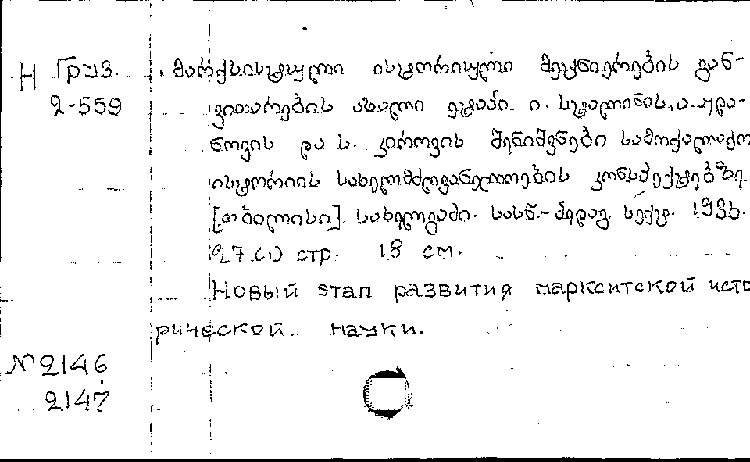 Н Груз. მარქსისტული ისტორიული მეცნიერების გან-
2-559 ვითარების ახალი ეტაპი. ი. სტალინის, ა. ჟდა-
ნოვის და ს. კიროვის შენიშვნები სამოქალაქო
ისტორიის სახელმძღვანელოების კონსპექტებზე.
[თბილისი]. სახელგამი. სასწ.-პედაგ. სექტ. 1936.
27 (1) стр. 18 см.
Новый этап развития маркситской исто
рической науки.
№ 2146
2147